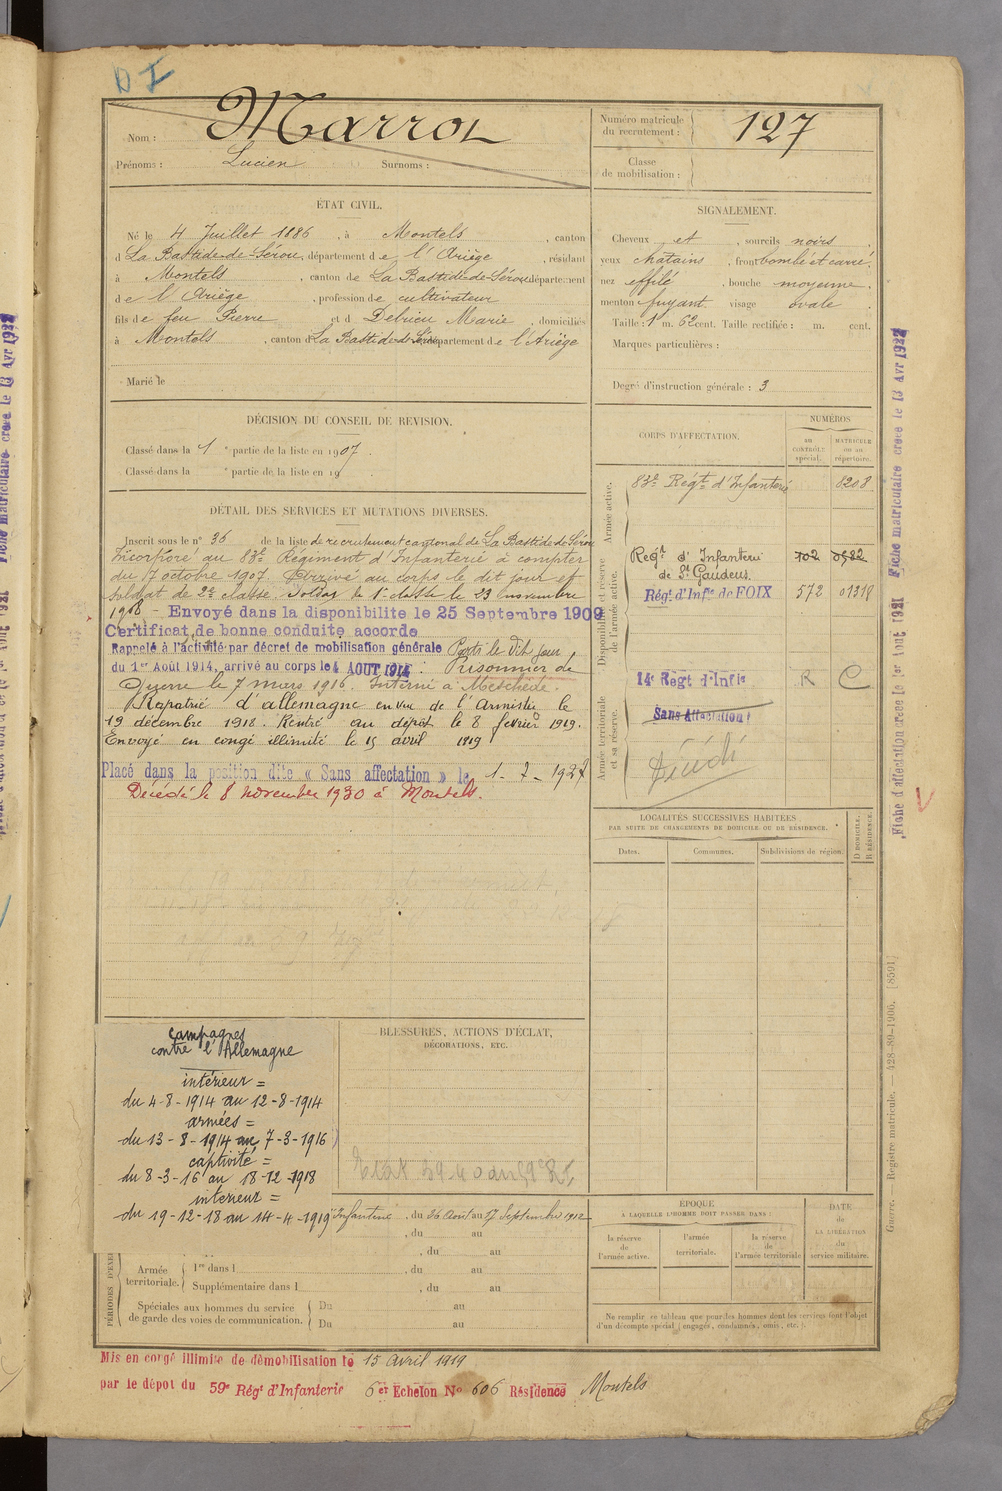 D I
Nom : Marrot
Prénoms : Lucien Surnoms :
Numéro matricule du recrutement : 127
Classe de mobilisation :
ÉTAT CIVIL.
Né le 4 Juillet 1886, à Montels, canton
d La Bastide-de-Sérou, département de l'Ariège, résidant
à Montels, canton de La Bastide-de-Sérou, département
de l'Ariège, profession de cultivateur
fils de feu Pierre et d Debrieu Marie, domiciliés
à Montels, canton d La Bastide-de-Sérou département de l'Ariège
Marié le
SIGNALEMENT.
Cheveux et , sourcils noirs
yeux chatains, front bombé et carré
nez effilé, bouche moyenne
menton fuyant visage ovale
Taille : 1 m. 62 cent. Taille rectifiée : m. cent.
Marques particulières :
Degré d'instruction générale : 3
DÉCISION DU CONSEIL DE REVISION.
Classé dans la 1e partie de la liste en 1907.
Classé dans la e partie de la liste en 19
CORPS D'AFFECTATION.
NUMÉROS
au contrôle spécial.
matricule ou au répertoire.
Armée active.
83e Régt d'Infanterie 8208
Disponibilité et réserve de l'armée active.
Regt d'Infanterie de St Gaudens 702 0582
Régt d'Infie de FOIX 572 01318
Armée territoriale et sa réserve.
14e Régt d'Infie R C
Sans Affectation
Décédé
DÉTAIL DES SERVICES ET MUTATIONS DIVERSES.
Inscrit sous le n° 36 de la liste de recrutement cantonal de La Bastide de Sérou
Incorporé au 83e Régiment d'Infanterie à compter
du 7 octobre 1907. Arrivé au corps le dit jour et
soldat de 2e classe. Soldat de 1e classe le 23 novembre
1908 - Envoyé dans la disponibilité le 25 Septembre 1909
Certificat de bonne conduite accordé
Rappelé à l'activité par décret de mobilisation générale
du 1er Août 1914, arrivé au corps le 4 AOUT 1914. Prisonnier de
guerre le 7 mars 1916. Interné à Meschède.
Rapatrié d'allemagne en vue de l'Armistice le
19 décembre 1918. Rentré au dépôt le 8 février 1919.
Envoyé en congé illimité le 15 avril 1919
Placé dans la position dite « Sans affectation » le 1-7-1927
Décédé le 8 novembre 1930 à Montels.
LOCALITÉS SUCCESSIVES HABITÉES
PAR SUITE DE CHANGEMENTS DE DOMICILE OU DE RÉSIDENCE.
Dates.
Communes.
Subdivisions de région.
D DOMICILE. R RÉSIDENCE.
campagnes
contre l'Allemagne
intérieur =
du 4-8-1914 au 12-8-1914
armées =
du 13-8-1914 au 7-3-1916
captivité =
du 8-3-16 au 18-12-1918
interieur =
du 19-12-18 au 14-4-1919
BLESSURES, ACTIONS D'ÉCLAT,
DÉCORATIONS, ETC.
Infanterie, du 26 Août au 17 Septembre 1912
, du au
, du au
PÉRIODES D'EXE
Armée territoriale.
1re dans l , du au
Supplémentaire dans l , du au
Spéciales aux hommes du service de garde des voies de communication.
Du au
Du au
ÉPOQUE
A LAQUELLE L'HOMME DOIT PASSER DANS :
la réserve de l'armée active.
l'armée territoriale.
la réserve de l'armée territoriale
DATE DE LA LIBÉRATION du service militaire.
Ne remplir ce tableau que pour les hommes dont les services font l'objet
d'un décompte spécial (engagés, condamnés, omis, etc.).
Mis en congé illimité de démobilisation le 15 avril 1919
par le dépôt du 59e Régt d'Infanterie 6er Echelon No 606 Résidence Montels
Fiche d'affectation créée le 1er Août 1921 Fiche matriculaire créée le 13 Avr 1922
Guerre. - Registre matricule. - 428-89-1906. [8591]